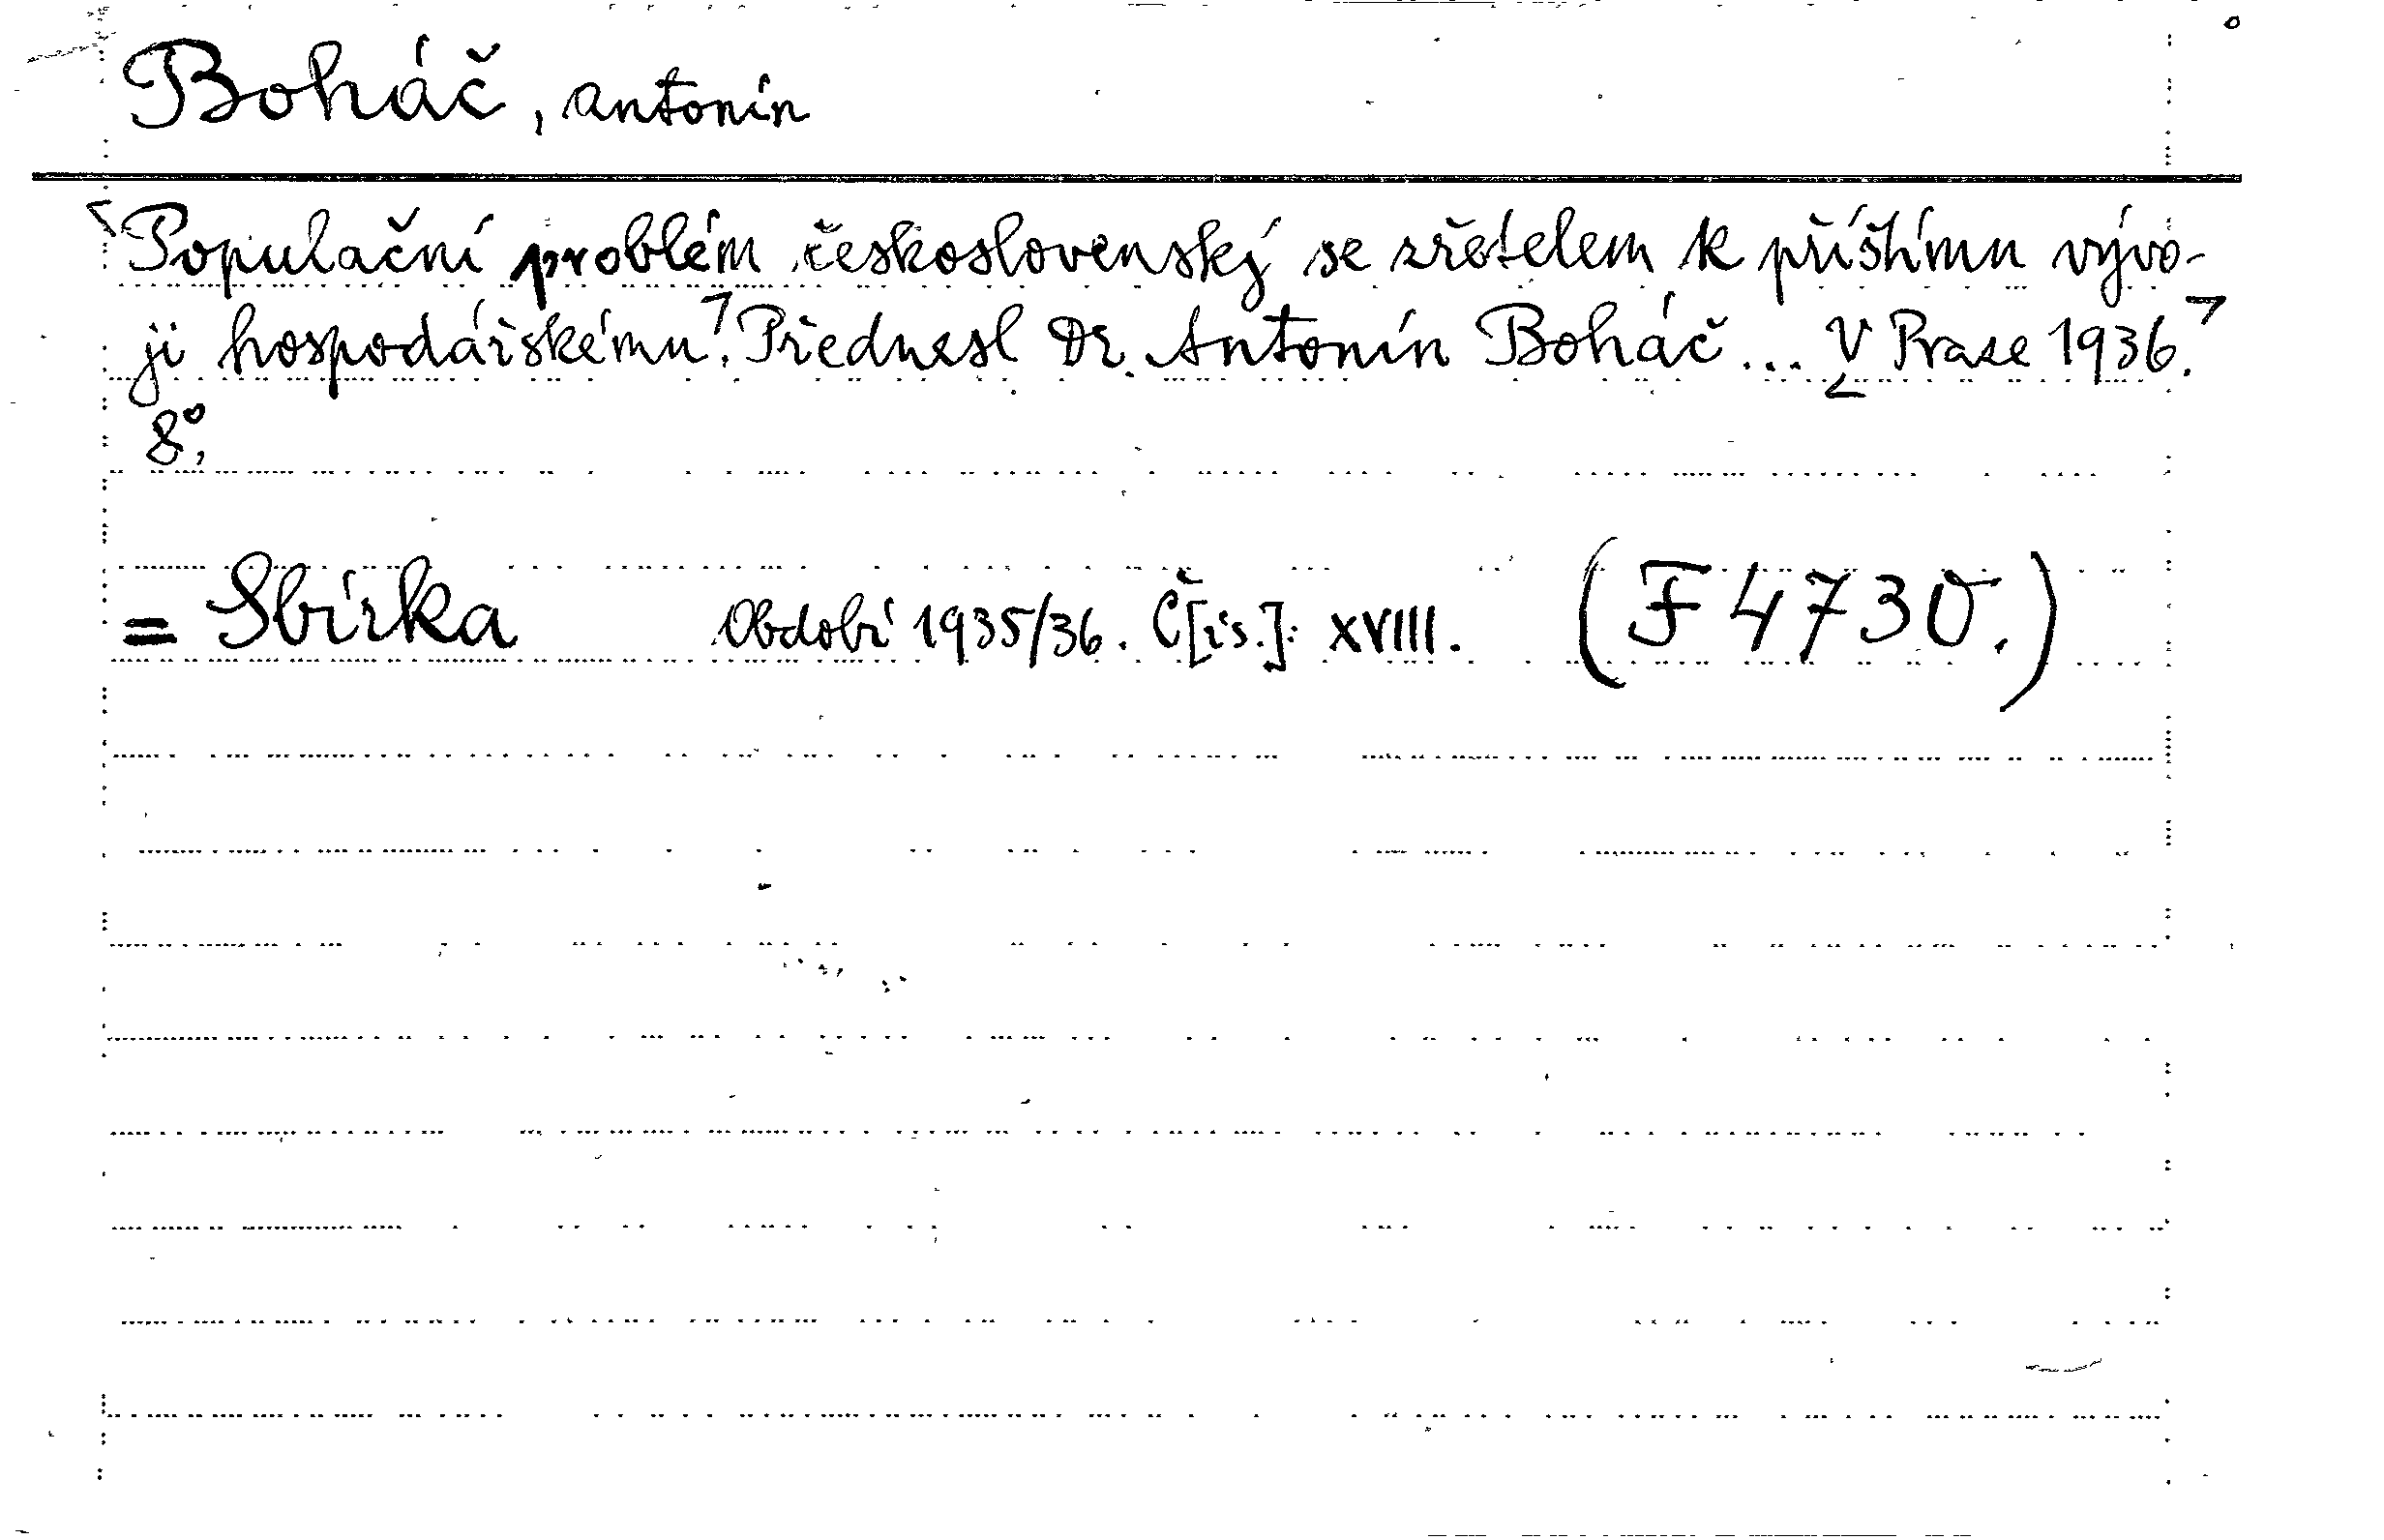 Boháč, Antonín
Populační problém československý se zřetelem k příštímu vývo-
ji hospodářskému. Přednesl Dr. Antonín Boháč... V Praze 1936.
8°.
= Sbírka Období 1935/36. Č[ís.]: XVIII. (F 4730.)